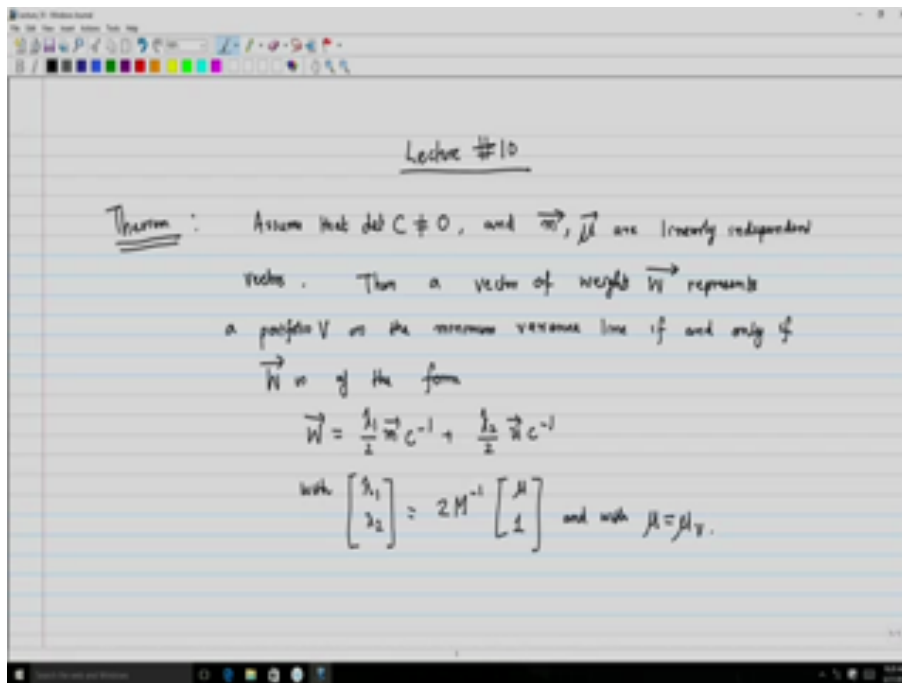 Lecture #10
Theorem : Assume that det C ≠ 0, and m⃗, μ⃗ are linearly independent
vector. Then a vector of weight W⃗ represents
a portfolio V on the minimum variance line if and only if
W⃗ is of the form
W⃗ = λ₁/2 m⃗ C⁻¹ + λ₂/2 u⃗ C⁻¹
with [λ₁ λ₂] = 2M⁻¹ [μ 1] and with μ = μᵥ.